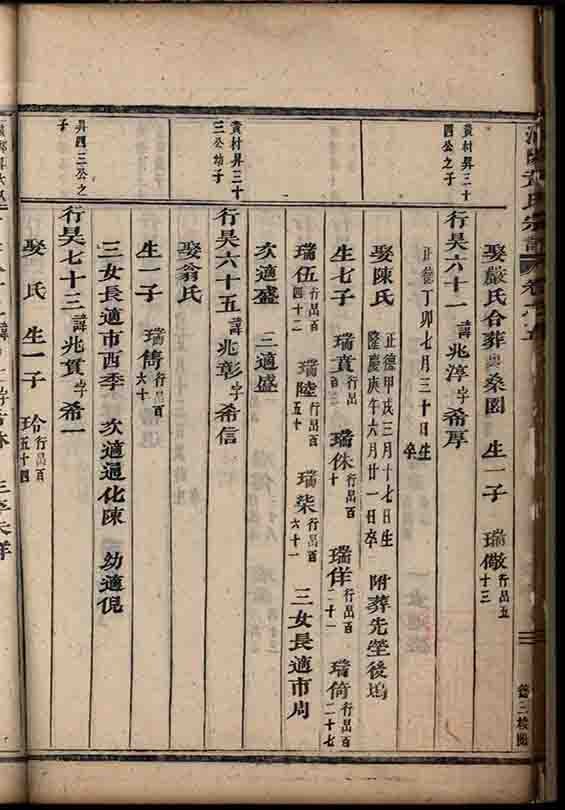 娶嚴氏合葬 桑園 生一子 瑞儆行昌五十三
黃材昇三十四公之子
行昊六十一諱兆淳字希厚
正德丁卯七月三十日生 卒
娶陳氏 正德甲戌三月十七日生 隆慶庚午六月廿一日卒 附葬先塋後塢
生七子 瑞賁行昌百三 瑞侏行昌百十 瑞佯行昌百二十一 瑞倚行昌百二十七
瑞伍行昌百四十二 瑞陸行昌百五十 瑞柒行昌百六十一 三女長適市周
次適盛 三適盛
黃材昇三十三公幼子
行昊六十五諱兆彰字希信
娶翁氏
生一子 瑞儁行昌百六十
三女長適市西李 次適通化陳 幼適倪
昇四三公之子
行昊七十三諱兆貫字希一
娶 氏 生一子 玲行昌百五十四